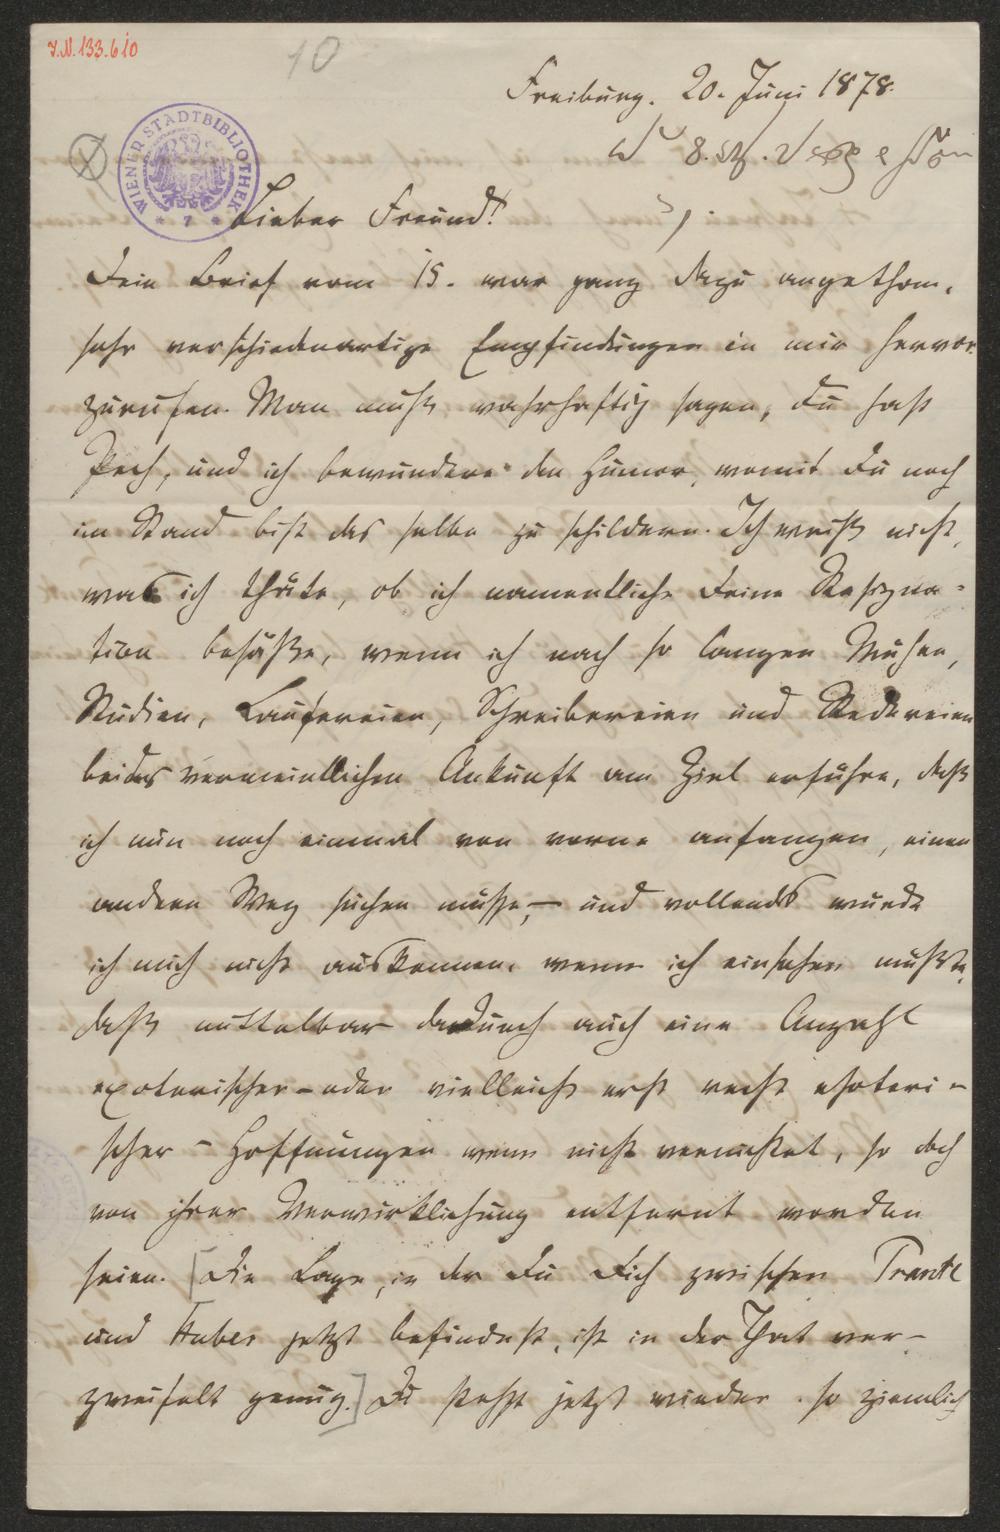 I.N. 133.610
10
Freiburg. 20. Juni 1878.
WIENER STADTBIBLIOTHEK
Lieber Freund!
Dein Brief vom 15. war ganz dazu angethan,
sehr verschiedenartige Empfindungen in mir hervor
zurufen. Man muß wahrhaftig sagen, Du hast
Pech, und ich bewundere den Humor, womit Du noch
im Stand bist das selbe zu schildern. Ich weiß nicht,
was ich thäte, ob ich namentlich Deine Resigna-
tion besäße, wenn ich nach so langen Mühen,
Studien, Laufereien, Schreibereien und Redereien
bei der vermeintlichen Ankunft am Ziel erführe, daß
ich nun noch einmal von vorne anfangen, einen
andern Weg suchen müsse, – und vollends würde
ich mich nicht auskennen, wenn ich einsehen müßte,
daß mittelbar dadurch auch eine Anzahl
exoterischer – oder vielleicht erst recht esoteri-
scher – Hoffnungen wenn nicht vernichtet, so doch
von ihrer Verwirklichung entfernt worden
seien. [Die Lage, in der Du Dich zwischen Prantl
und Huber jetzt befindest, ist in der That ver-
zweifelt genug.] Du stehst jetzt wieder so ziemlich